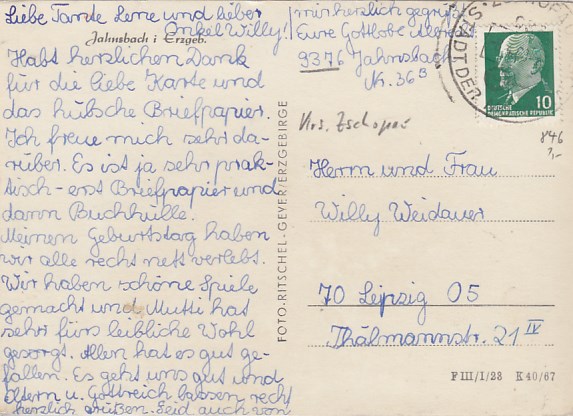 Liebe Tante Lene und lieber
Onkel Willy!
Jahnsbach i. Erzgeb.
Habt herzlichen Dank
für die liebe Karte und
das hübsche Briefpapier.
Ich freue mich sehr da-
rüber. Es ist ja sehr prak-
tisch - erst Briefpapier und
dann Buchhülle.
Meinen Geburtstag haben
wir alle recht nett verlebt.
Wir haben schöne Spiele
gemacht und Mutti hat
sehr fürs leibliche Wohl
gesorgt. Allen hat es gut ge-
fallen. Es geht uns gut und
Eltern u. Gottreich lassen recht
herzlich grüßen. Seid auch von
mir herzlich gegrüßt
Eure Gottlobe
9376 Jahnsbach
Nr. 36B
FOTO-RITSCHEL-GEYER/ERZGEBIRGE
Krs. Zschopau
DEUTSCHE
DEMOKRATISCHE REPUBLIK
10
STADT DER
846
Herrn und Frau
Willy Weidauer
70 Leipzig O5
Thälmannstr. 21 IV
F III/1/23 K 40/67